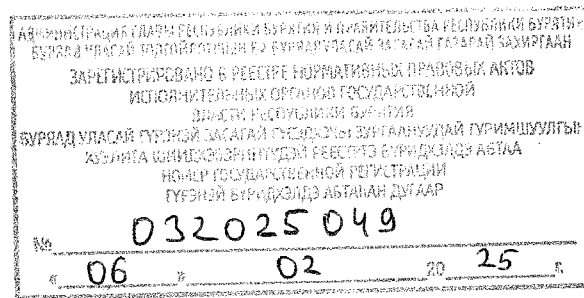 АДМИНИСТРАЦИЯ ГЛАВЫ РЕСПУБЛИКИ БУРЯТИЯ И ПРАВИТЕЛЬСТВА РЕСПУБЛИКИ БУРЯТИЯ
БУРЯАД УЛАСАЙ ЗАСАГАЙ ГАЗАРАЙ ЗАХИРГААН
ЗАРЕГИСТРИРОВАНО В РЕЕСТРЕ НОРМАТИВНЫХ ПРАВОВЫХ АКТОВ
ИСПОЛНИТЕЛЬНЫХ ОРГАНОВ ГОСУДАРСТВЕННОЙ
ВЛАСТИ РЕСПУБЛИКИ БУРЯТИЯ
БУРЯАД УЛАСАЙ ГҮРЭНЭЙ ЗАСАГАЙ
РЕЕСТРТЭ БҮРИДХЭЛДЭ АБТАА
НОМЕР ГОСУДАРСТВЕННОЙ РЕГИСТРАЦИИ
ГҮРЭНЭЙ БҮРИДХЭЛДЭ АБТАҺАН ДУГААР
№ 032025049
« 06 » 02 20 25 г.